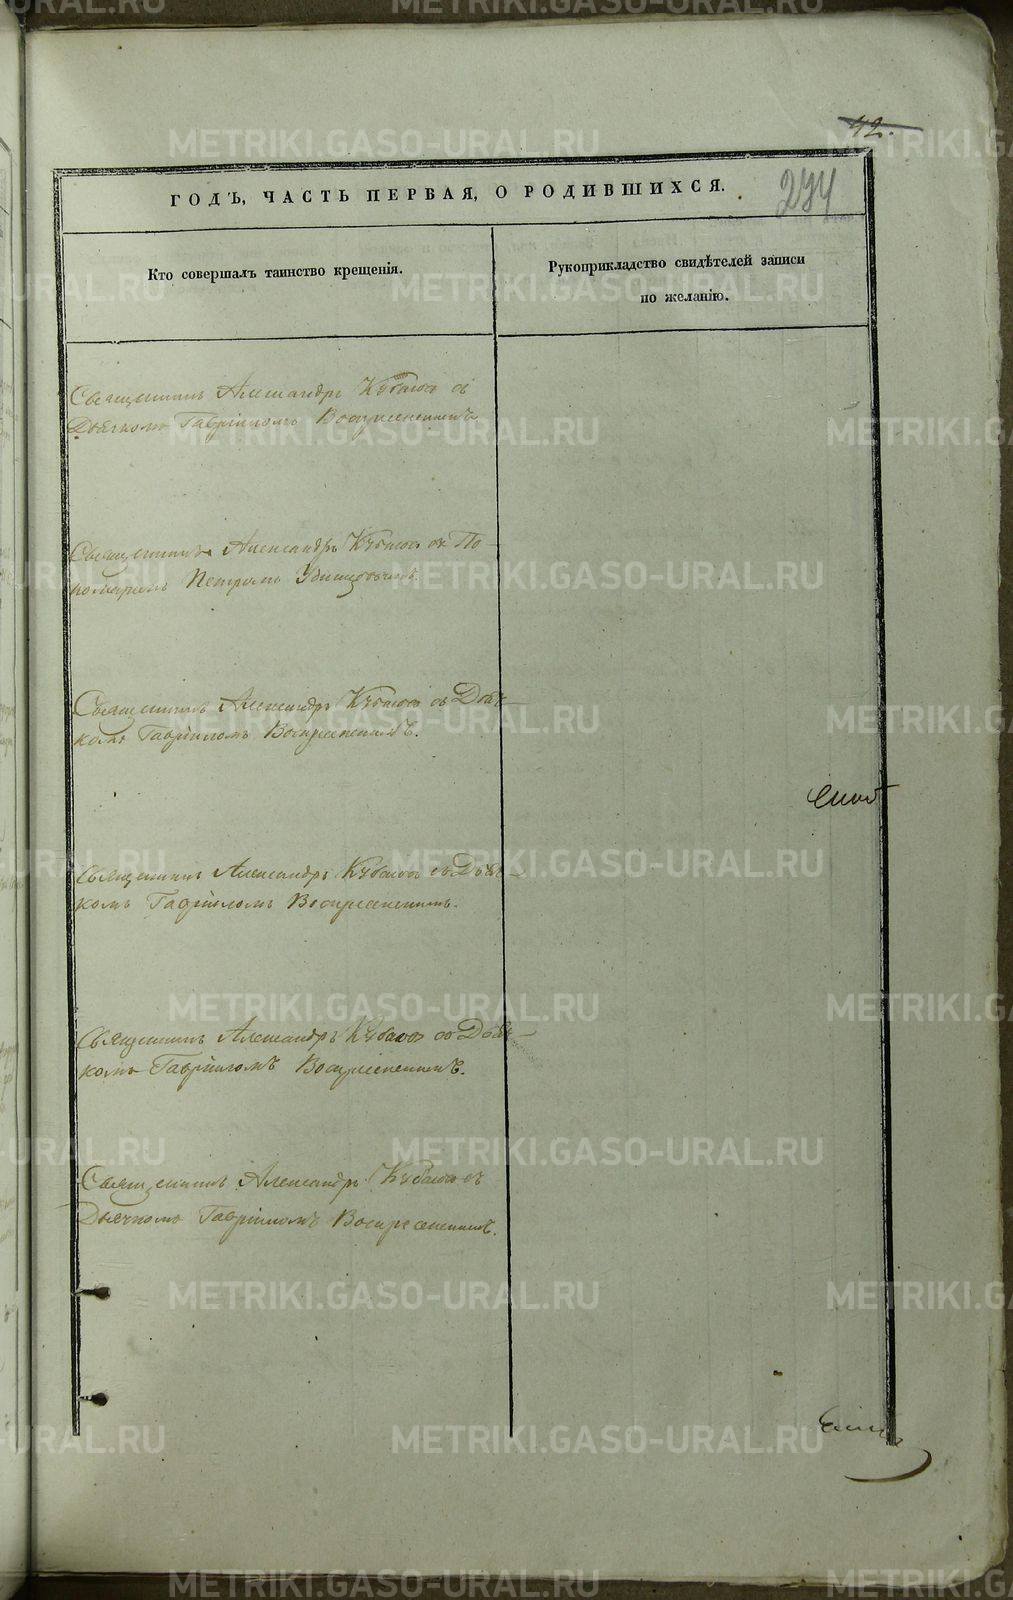 42.
ГОДЪ, ЧАСТЬ ПЕРВАЯ, О РОДИВШИХСЯ.
274
Кто совершалъ таинство крещенія.
Рукоприкладство свидѣтелей записи
по желанію.
Священникъ Александръ Кубасов съ
Дьячкомъ Гавріиломъ Воскресенскимъ
Священникъ Александръ Кубасов съ По-
номаремъ Петромъ
Священникъ Александръ Кубасов съ Дьяч-
комъ Гавріиломъ Воскресенскимъ.
Священникъ Александръ Кубасов съ Дьяч-
комъ Гавріиломъ Воскресенскимъ.
Священникъ Александръ Кубасов съ Дьяч-
комъ Гавріиломъ Воскресенскимъ.
Священникъ Александръ Кубасов съ
Дьячкомъ Гавріиломъ Воскресенскимъ.
METRIKI.GASO-URAL.RU